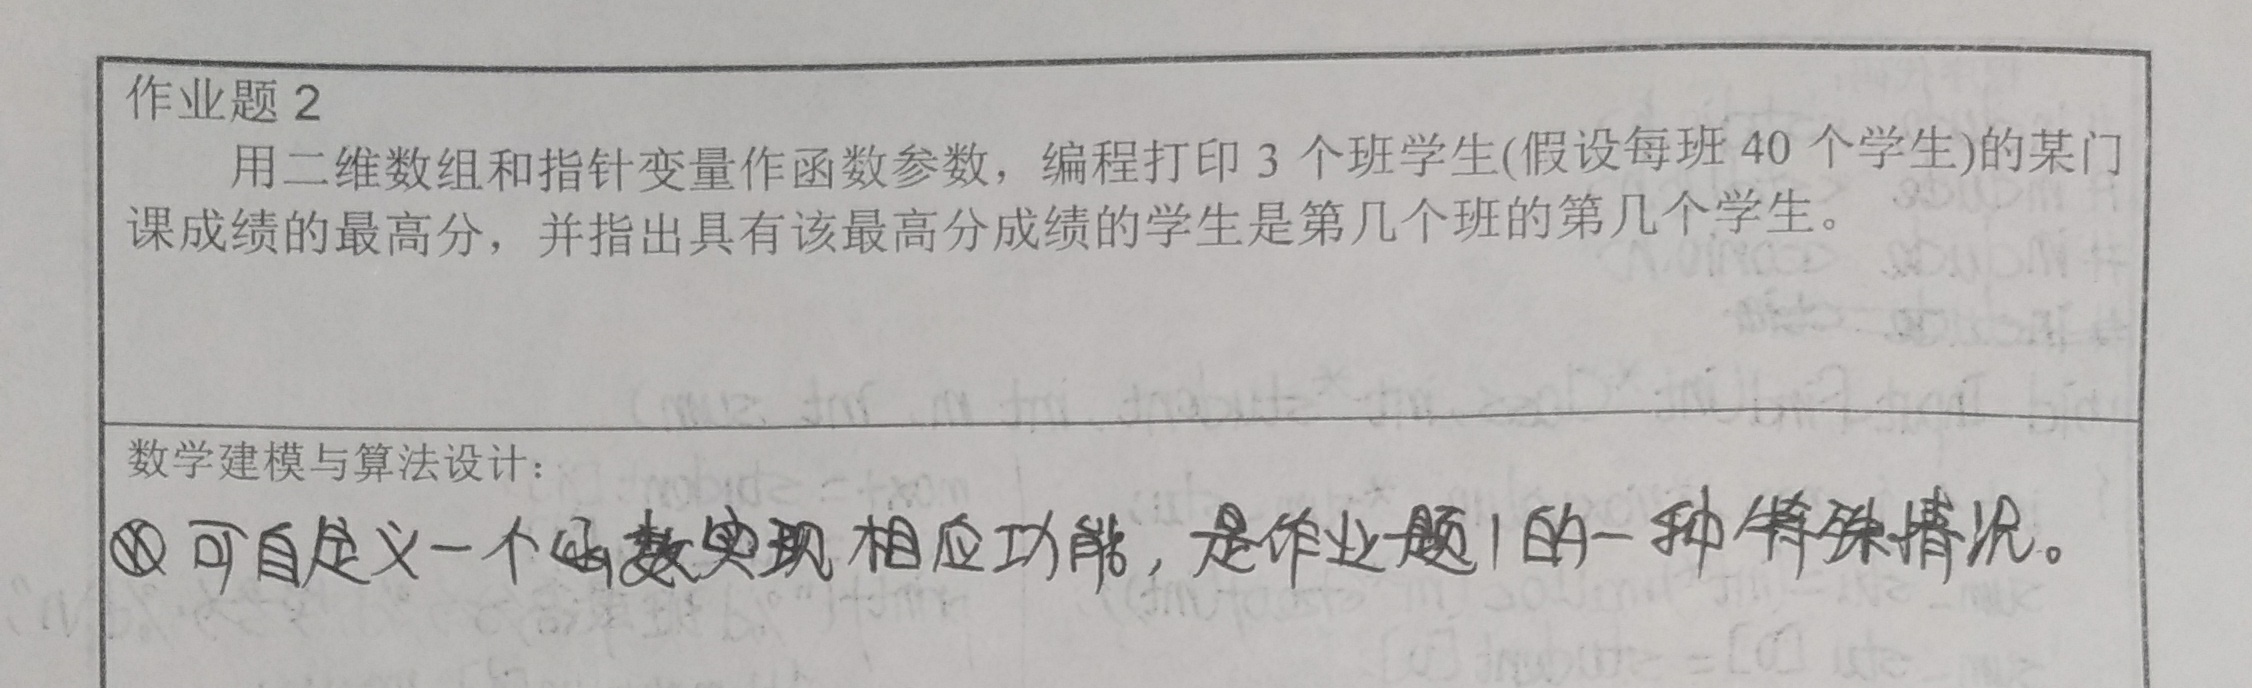 作业题 2
用二维数组和指针变量作函数参数，编程打印 3 个班学生(假设每班 40 个学生)的某门
课成绩的最高分，并指出具有该最高分成绩的学生是第几个班的第几个学生。
数学建模与算法设计：
可自定义一个函数实现相应功能，是作业题1的一种特殊情况。